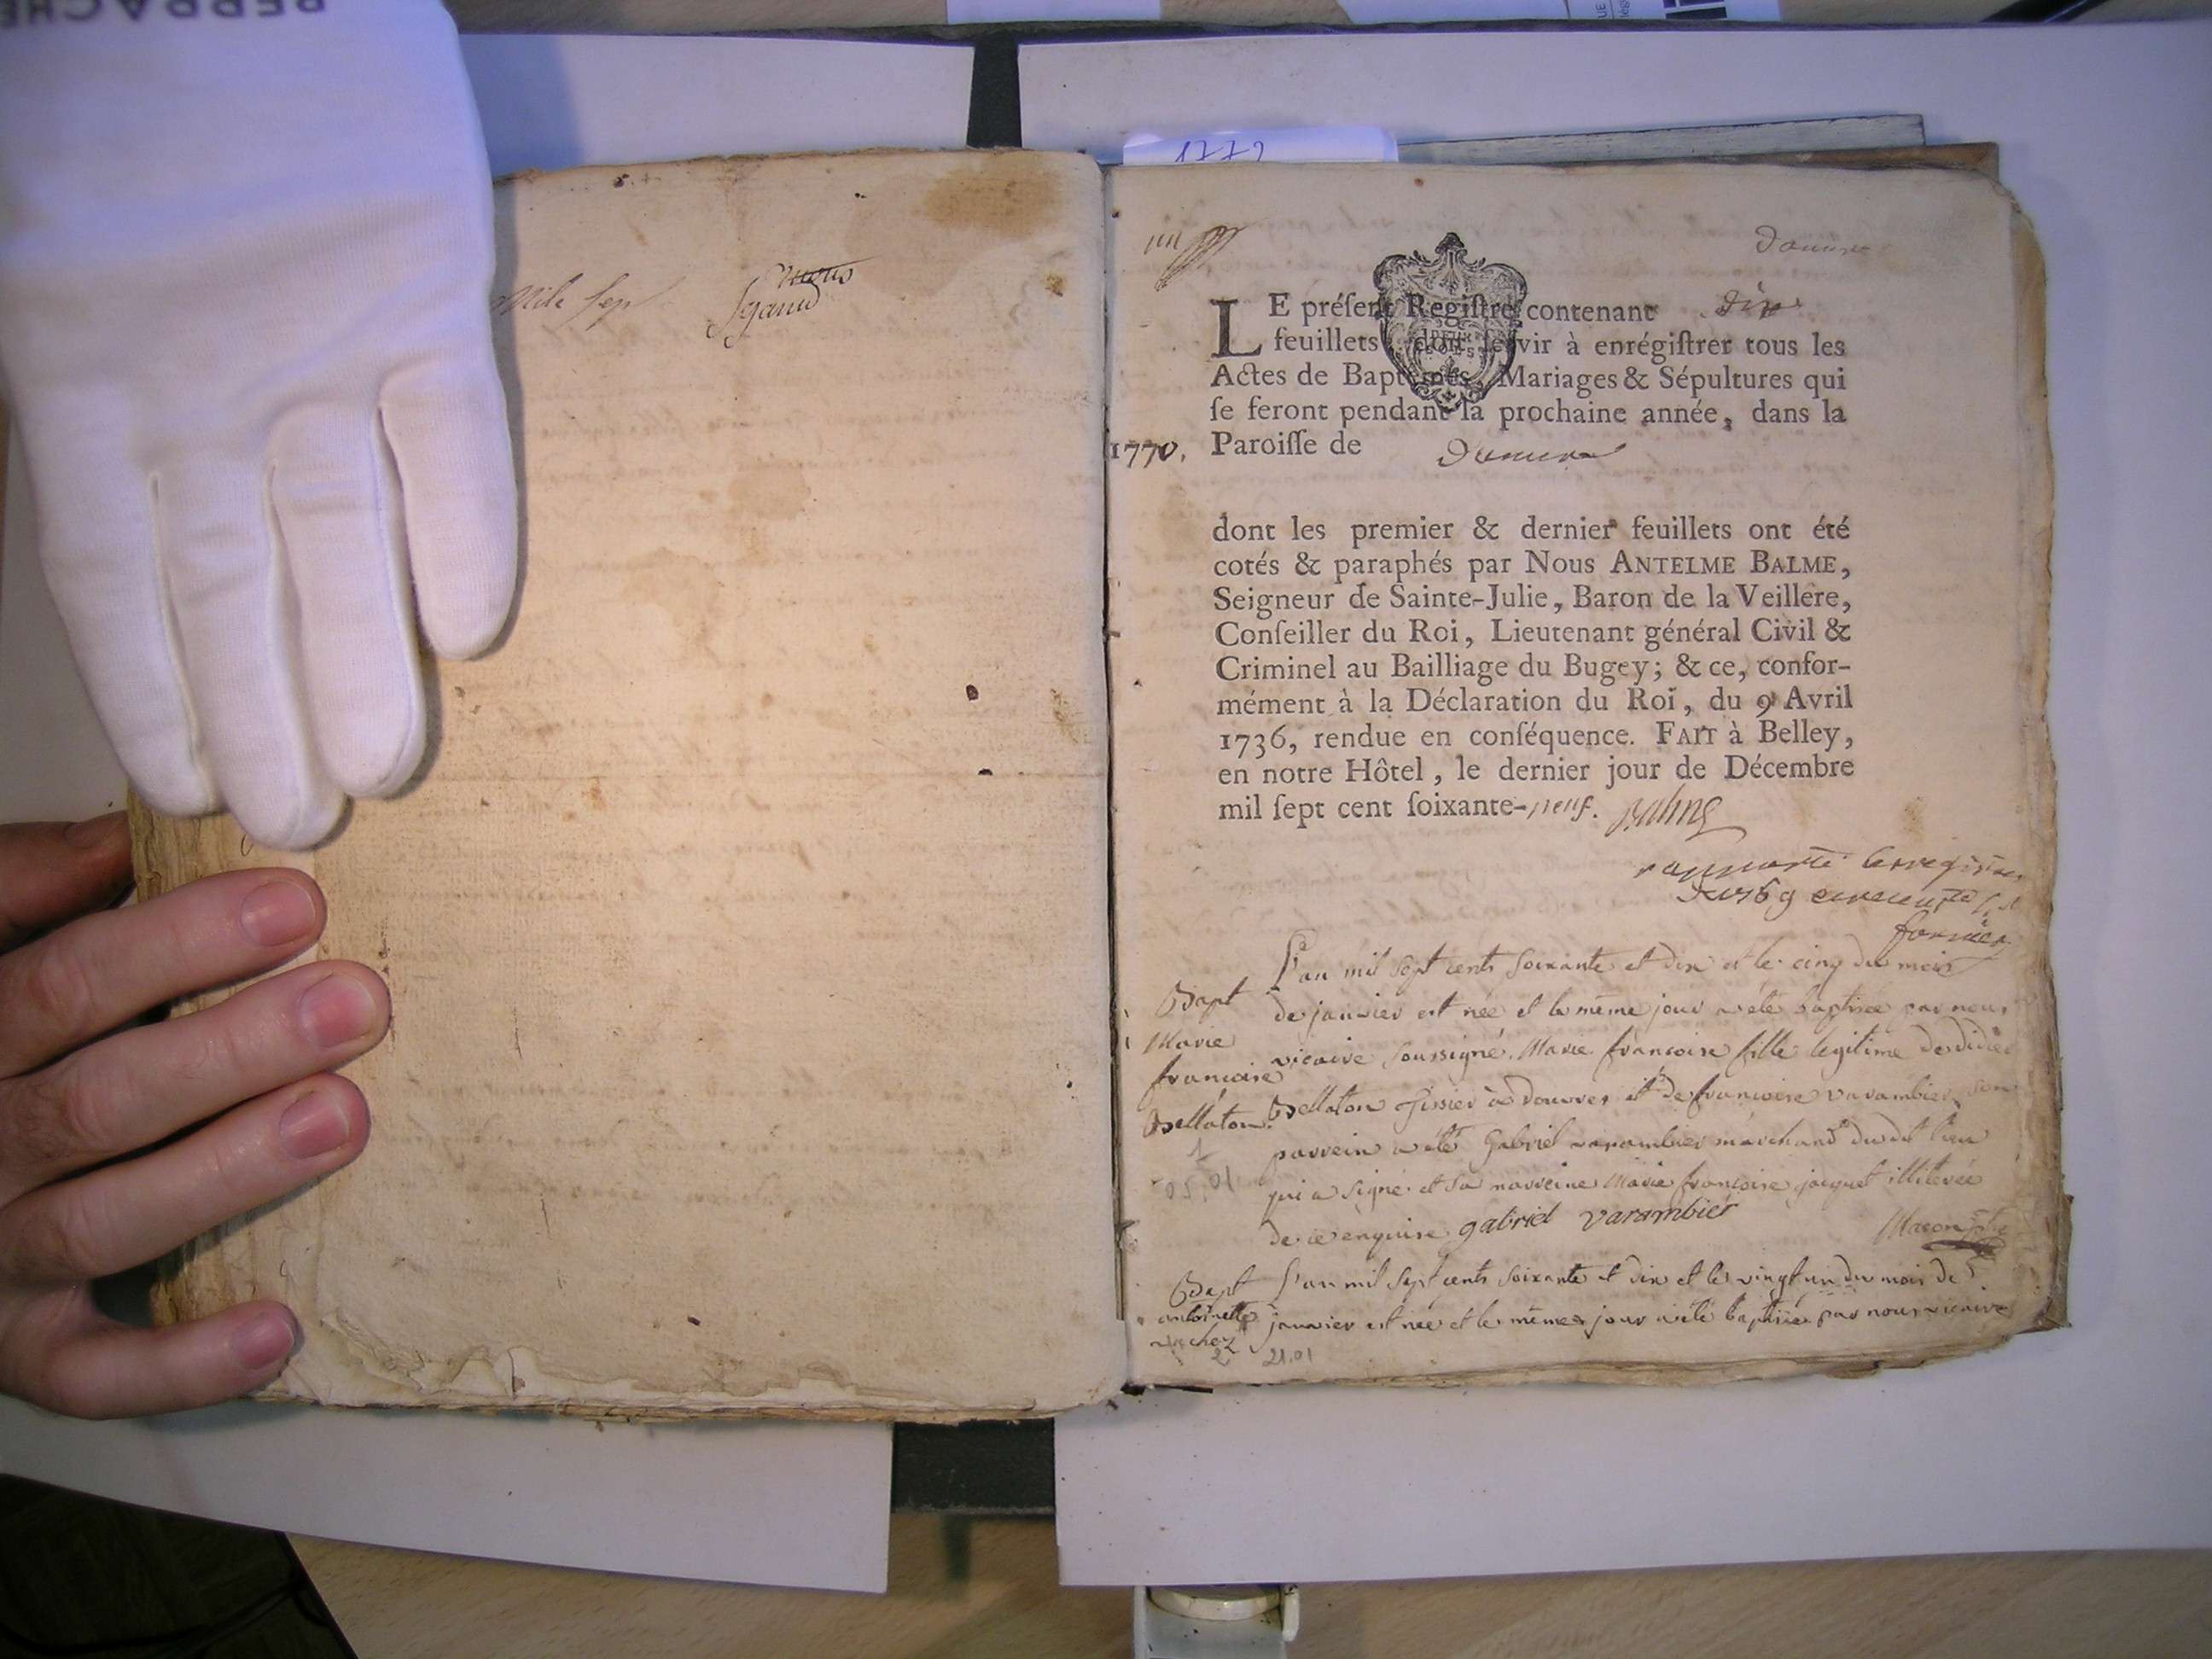 PERRACHE
1771
Mile sep
nous
Douvre
LE préſent Regiſtre contenant dix
feuillets, doit ſervir à enrégiſtrer tous les
Actes de Baptêmes, Mariages & Sépultures qui
ſe feront pendant la prochaine année, dans la
1770. Paroiſſe de Douvre
dont les premier & dernier feuillets ont été
cotés & paraphés par Nous ANTELME BALME,
Seigneur de Sainte-Julie, Baron de la Veillere,
Conſeiller du Roi, Lieutenant général Civil &
Criminel au Bailliage du Bugey; & ce, confor-
mément à la Déclaration du Roi, du 9 Avril
1736, rendue en conſéquence. FAIT à Belley,
en notre Hôtel, le dernier jour de Décembre
mil ſept cent ſoixante-neuf. Balme
L'an mil sept cents soixante et dix et le cinq du mois
Bapt de janvier est née et le même jour a été baptisée par nous
Marie vicaire soussigné Marie françoise fille legitime de didier
françoise
Bellaton. Bellaton à douvres et de françoise varambier son
1 parrein a été Gabriel varambier marchand du dit lieu
05.01 qui a signé et sa marreine Marie françoise jacquet illiterée
de ce enquise gabriel varambier
Bapt L'an mil sept cents soixante et dix et le vingt un du mois de
antoinette janvier est née et le même jour a été baptisée par nous vicaire
vachez
2 21.01